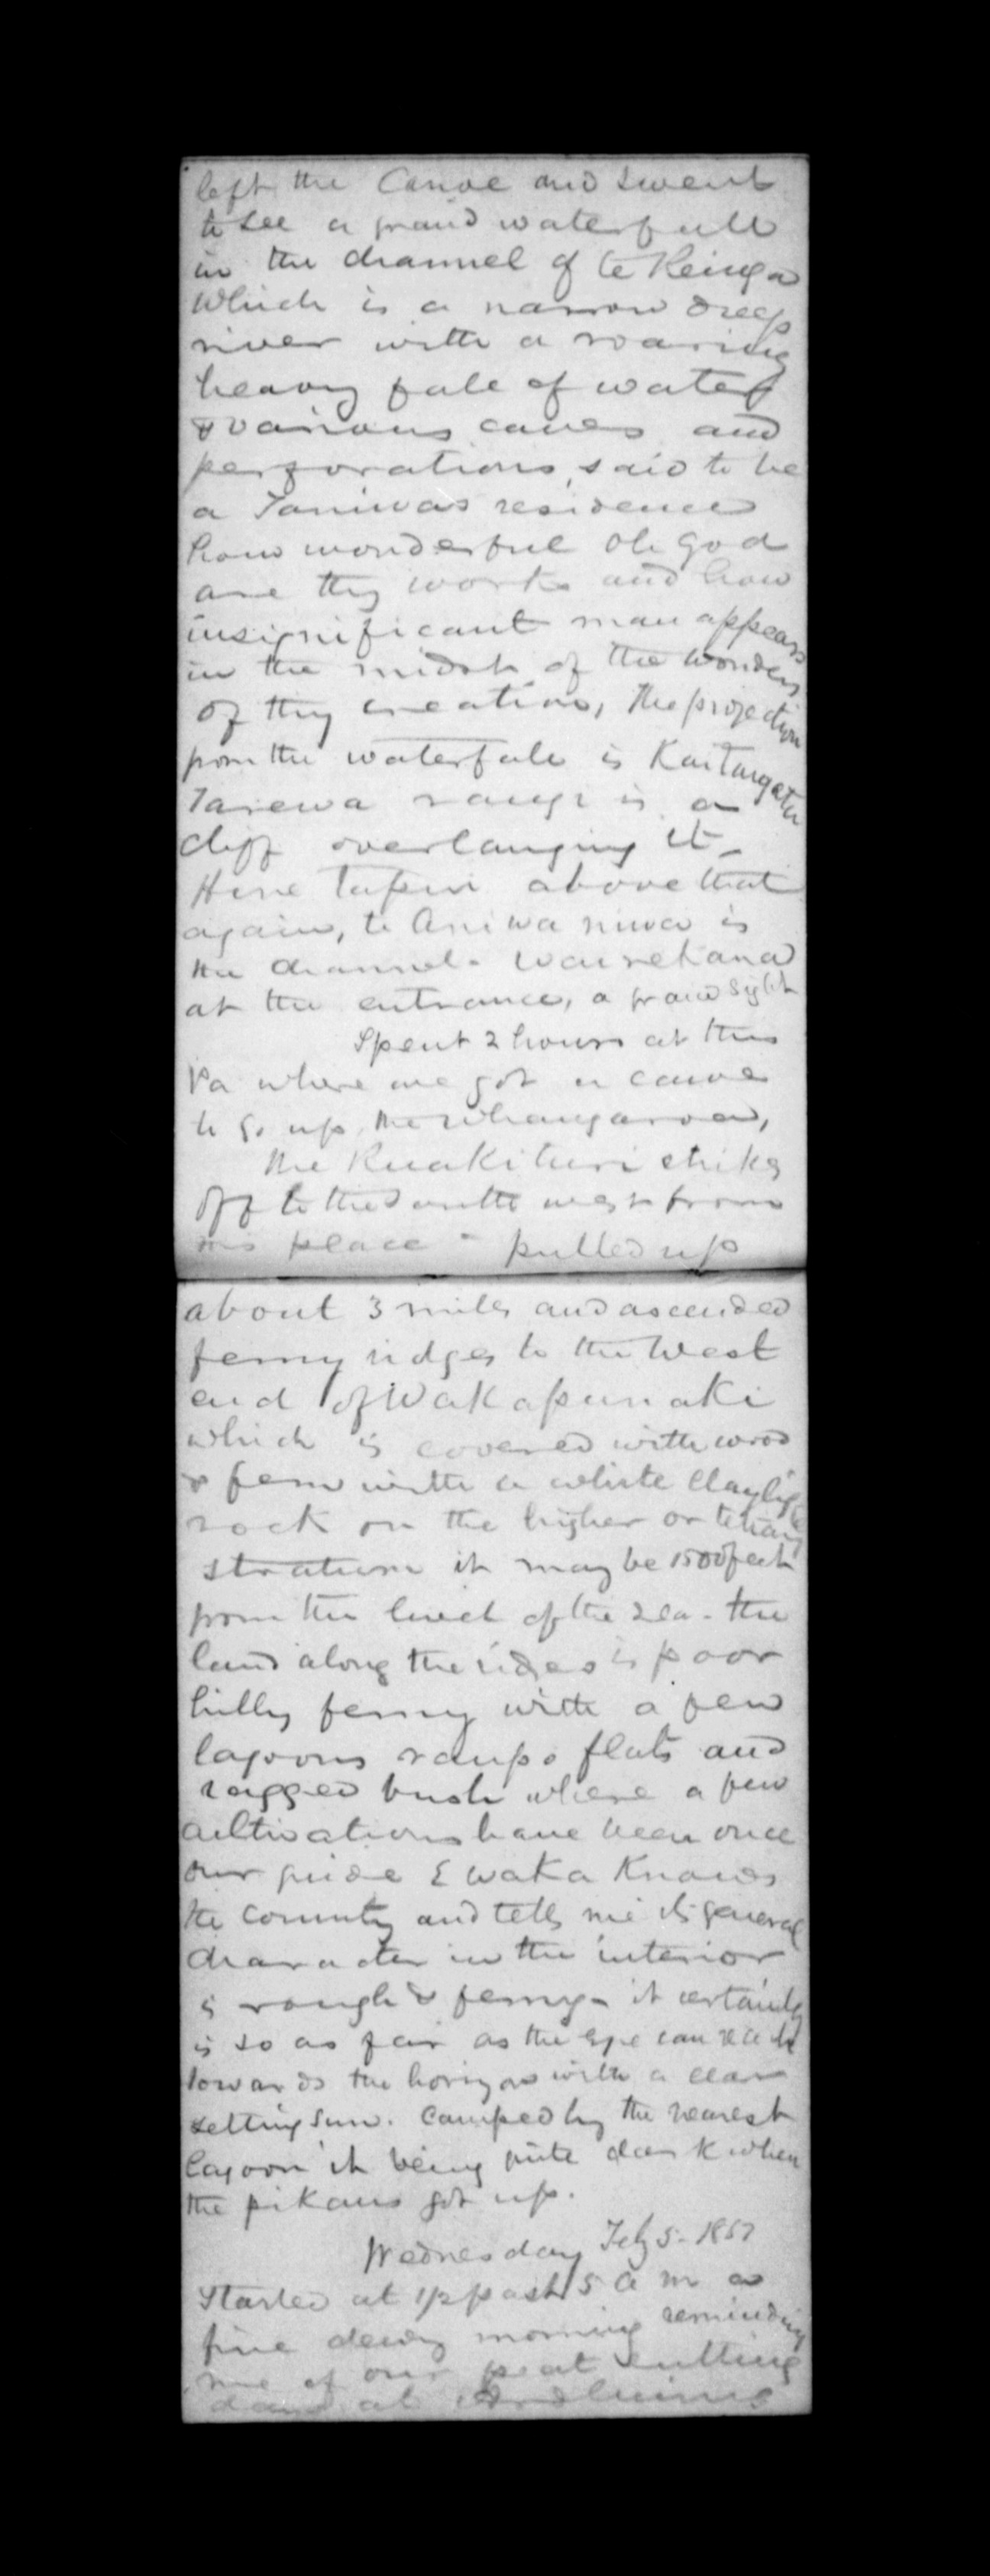 left the Canoe and went
to see a grand waterfall
in the channel of te Reinga
which is a narrow deep
river with a roaring
heavy fall of water
& various caves and
perforations, said to be
a Taniwas residence
how wonderful Oh God
are thy works and how
insignificant man appears
in the midst of the wonders
of thy creation, The projection
from the waterfall is
Tarewa rangi is a
cliff overhanging it -
Hine above that
again, te Aniwa niwa is
the channel - Wairehana
at the entrance, a grand sight
Spent 2 hours at this
Pa where we got a canoe
to go up the Whangaroa,
the Ruakituri strikes
off to the South west from
this place - pulled up
about 3 miles and ascended
ferny ridges to the West
end of Wakapunaki
which is covered with wood
& fern with a white Claylike
rock on the higher or
stratum it may be 1500 feet
from the level of the sea - the
land along the ridges is poor
hilly ferny with a few
lagoons raupo flats and
ragged bush where a few
cultivations have been once
our guide E Waka Knows
the Country and tells me its general
character in the interior
is rough & ferny - it certainly
is so as far as the eye can reach
towards the horizon with a clear
setting Sun. Camped by the nearest
lagoon it being quite dark when
the pikaus got up.
Wednesday Feby 5 - 1851
Started at 1/2 past 5 A m a
fine dewy morning reminding
me of our peat cutting
days at